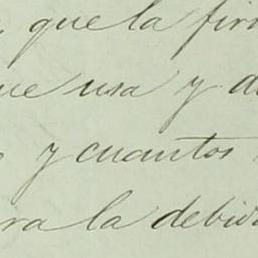 , que la fir
ue usa y d
y cuantos
ra la debid